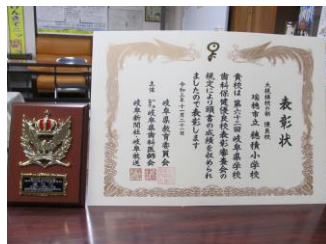 表彰状
大規模校の部 優良校
瑞穂市立 穂積小学校
貴校は第六十二回岐阜県学校
歯科保健優良校表彰審査会の
規定により頭書の成績を収められ
ましたので表彰します
主催
岐阜県教育委員会
岐阜県歯科医師会
岐阜新聞社・岐阜放送